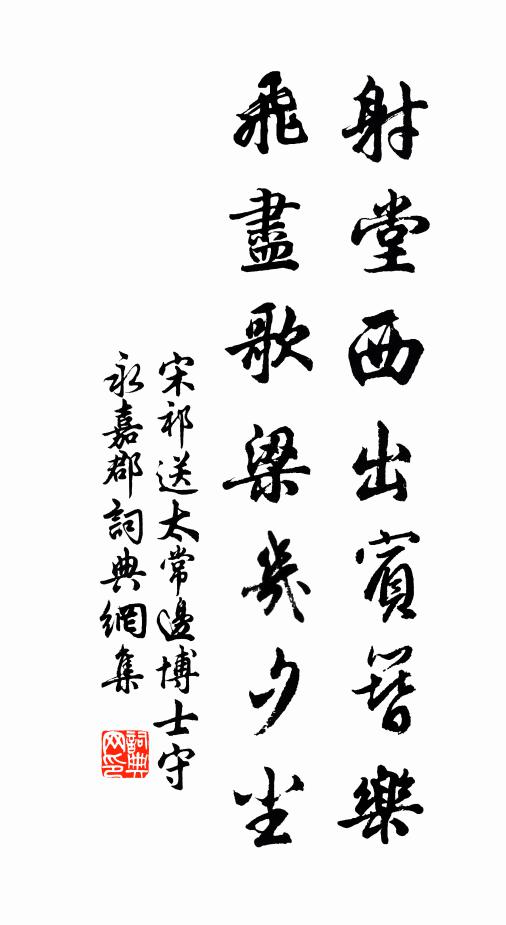 射堂西出賓簪樂
飛盡歌梁幾夕尘
宋祁送太常邊博士守
永嘉郡詞典網集
詞典
网印